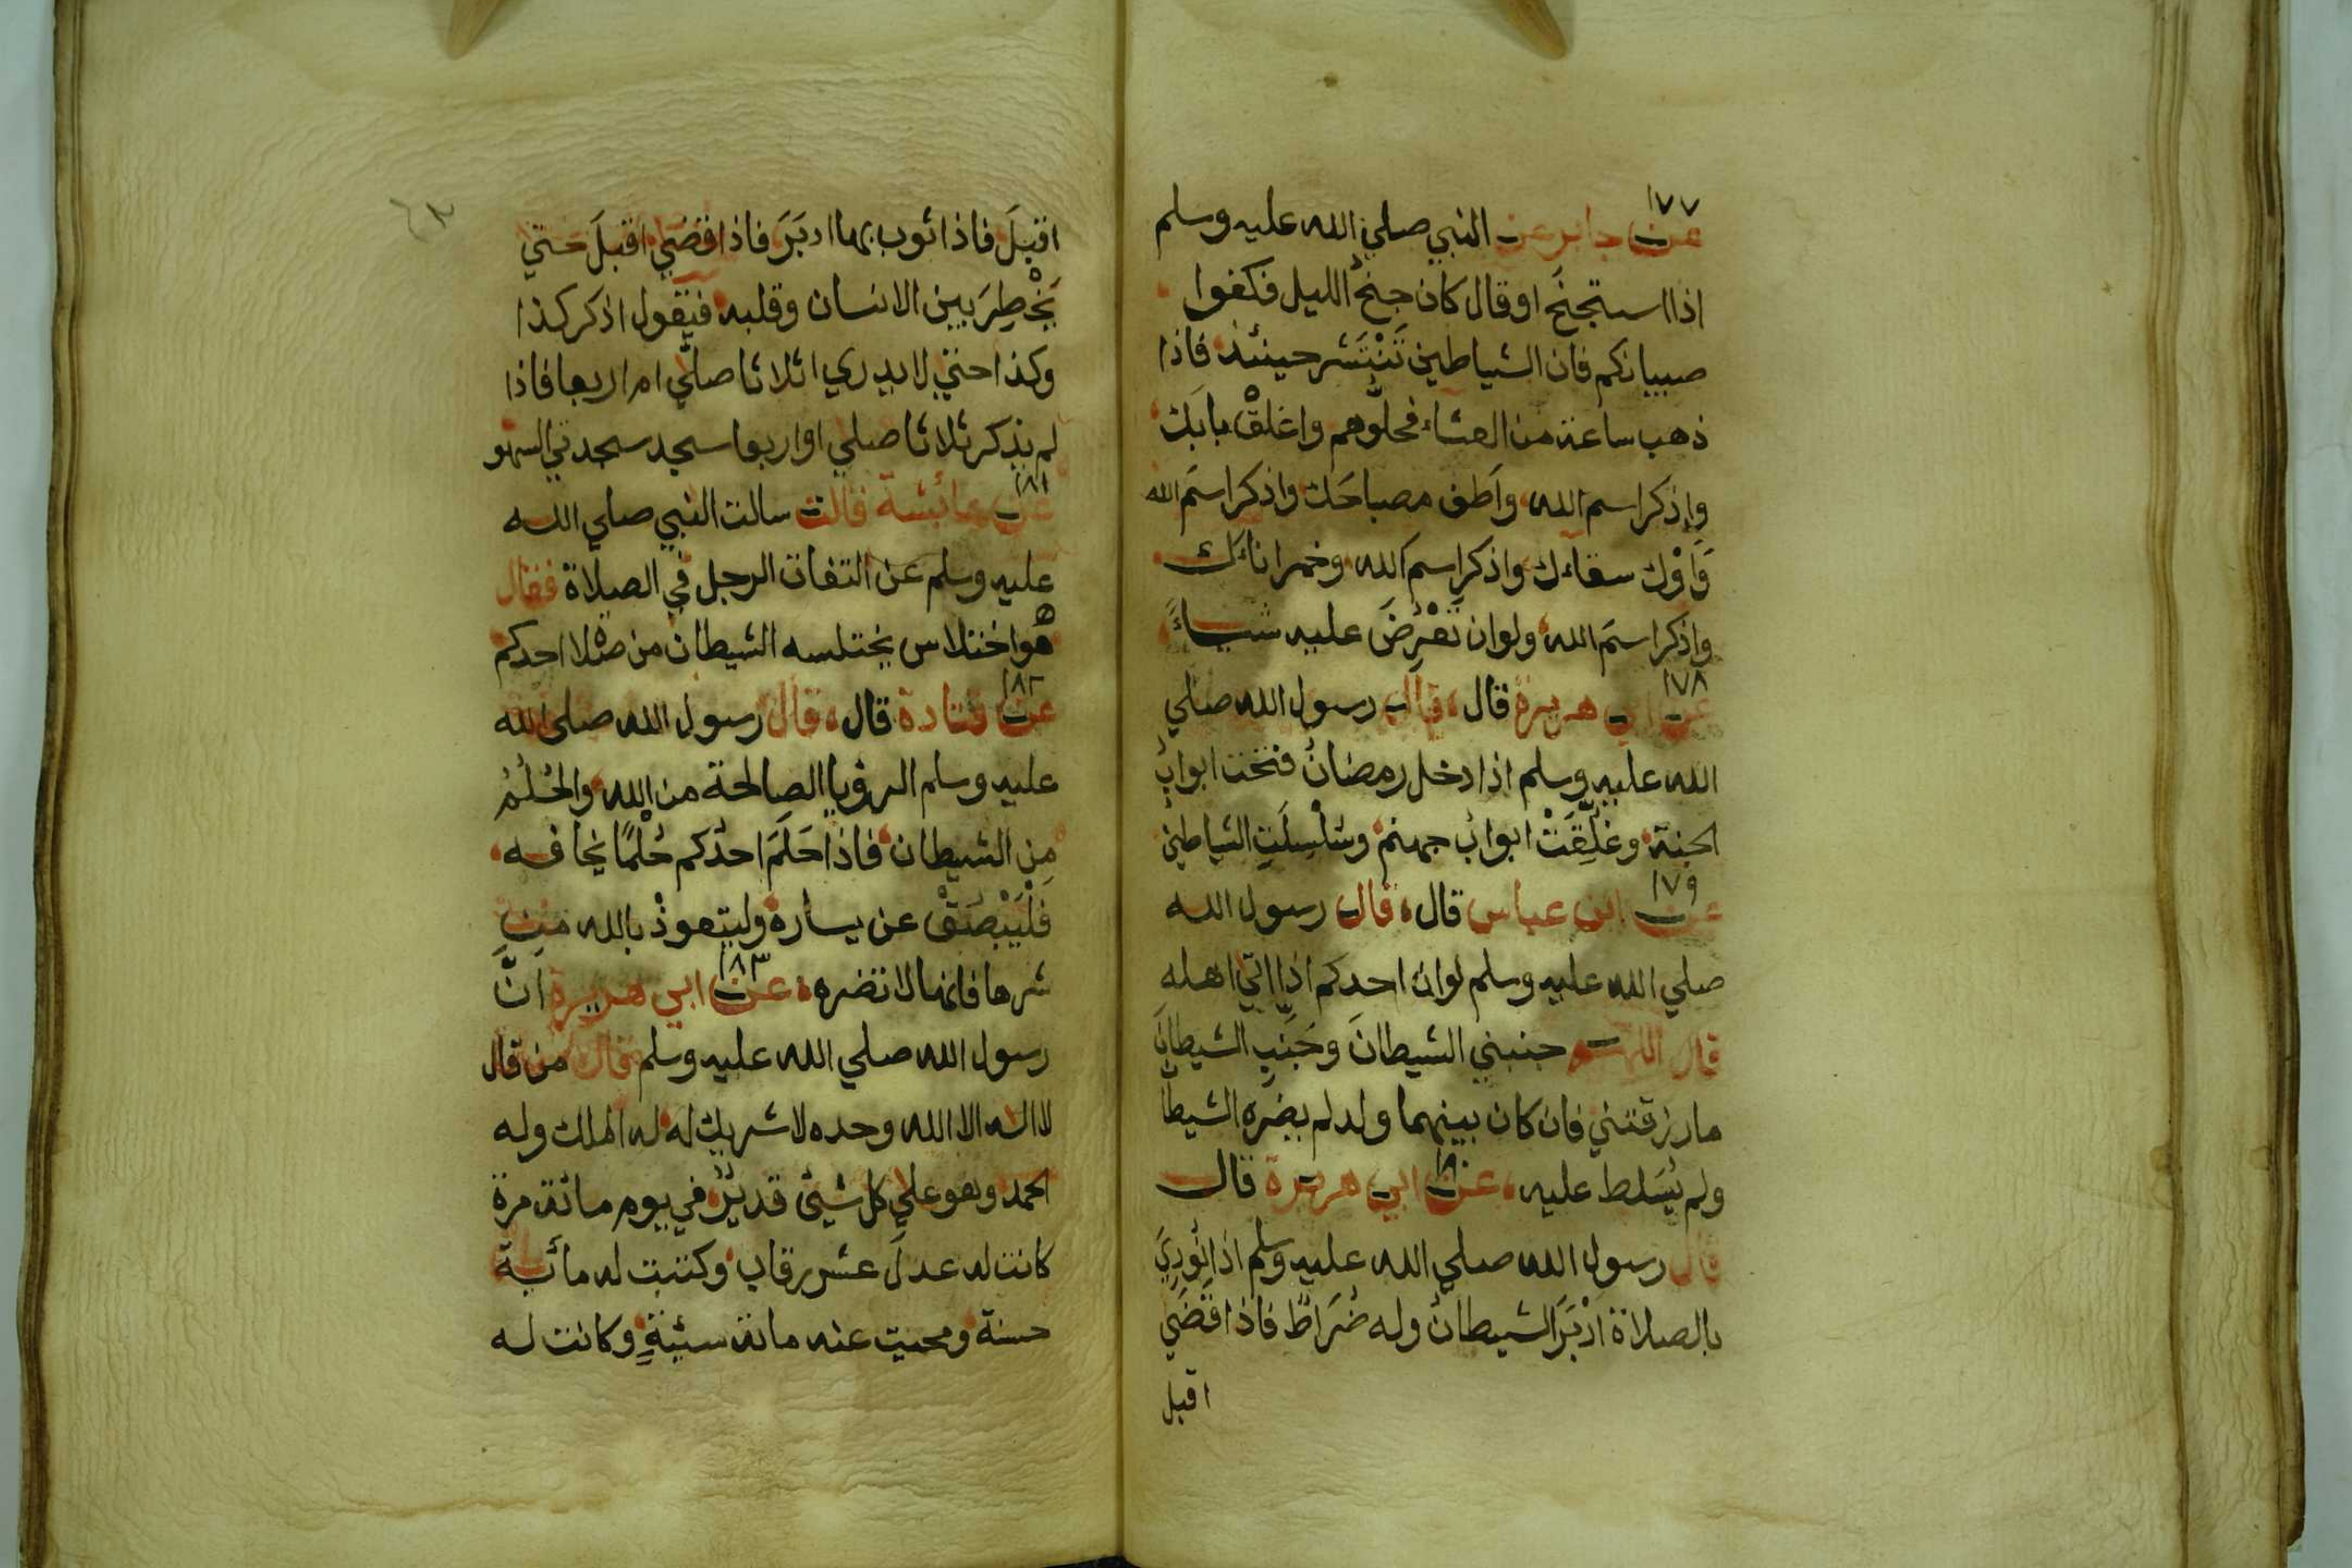 ١٧٧
عن جابر عن النبي صلي الله عليه وسلم
اذا استجنح او قال كان جنح الليل فكفوا
صبيانكم فان الشياطين تَنْتَشر حينئذ فاذا
ذهب ساعة من العشاء فحلّوهم واغلقْ بابَك
واذكر اسم الله واَطف مصباحَك واذكر اسمَ الله
وَاوْك سقاءك واذكر اسم الله وخمر اناءك
واذكر اسمَ الله ولو ان تَعْرُضَ عليه شياءً
١٧٨
عن ابي هريرة قال قال رسول الله صلي
الله عليه وسلم اذا دخل رمضانُ فتحت ابوابُ
الجنة وغلّقَتْ ابوابُ جهنم وسُلْسِلَتِ الشياطين
١٧٩
عن ابن عباس قال قال رسول الله
صلي الله عليه وسلم لو ان احدكم اذا اتي اهله
قال اللهم جنبني الشيطانَ وجَنِّبِ الشيطانَ
ما رزقتني فان كان بينهما ولد لم يضره الشيطا
ولم يُسَلط عليه ١٨٠ عن ابي هريرة قال
قال رسول الله صلي الله عليه وسلم اذا نُودِيَ
بالصلاة اَدْبَرَ الشيطانُ وله ضُرَاطٌ فاذا قضي
اقبل
اقبلَ فاذا ثوب بها ادبَرَ فاذا قضي اقبلَ حتي
يَخْطِرَ بين الانسان وقلبه فيقول اذكر كذا
وكذا حتي لا يدري اثلاثا صلّي ام اربعا فاذا
لم يذكر ثلاثا صلي او اربعا سجد سجدتي السهو
١٨١
عن عائشة قالت سالت النبي صلي الله
عليه وسلم عن التفات الرجل في الصلاة فقال
هو اختلاس يختلسه الشيطان من صلاة احدكم
١٨٢
عن قتادة قال قال رسول الله صلي الله
عليه وسلم الرؤيا الصالحة من الله والحُلُمُ
مِن الشيطان فاذا حَلَمَ احدُكم حُلْمًا يخافه
فَلْيَبْصُقْ عن يساره وليتعوذْ بالله مِن
شرها فانها لا تضره ١٨٣ عن ابي هريرة انَّ
رسول الله صلي الله عليه وسلم قال من قال
لا اله الا الله وحده لا شريك له له الملك وله
الحمد وهو علي كل شيئ قديرٌ في يوم مائة مرة
كانت له عدلَ عشر رقاب وكتبت له مائة
حسنة ومحيت عنه مائة سيئةٍ وكانت له